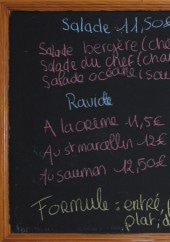 Salade 11,50€
Salade bergère (che
Salade du chef (cha
Salade océane (sau
Raviole
A la crème 11,5€
Au st marcellin 12€
Au saumon 12,50€
Formule = entré, p
plat, d